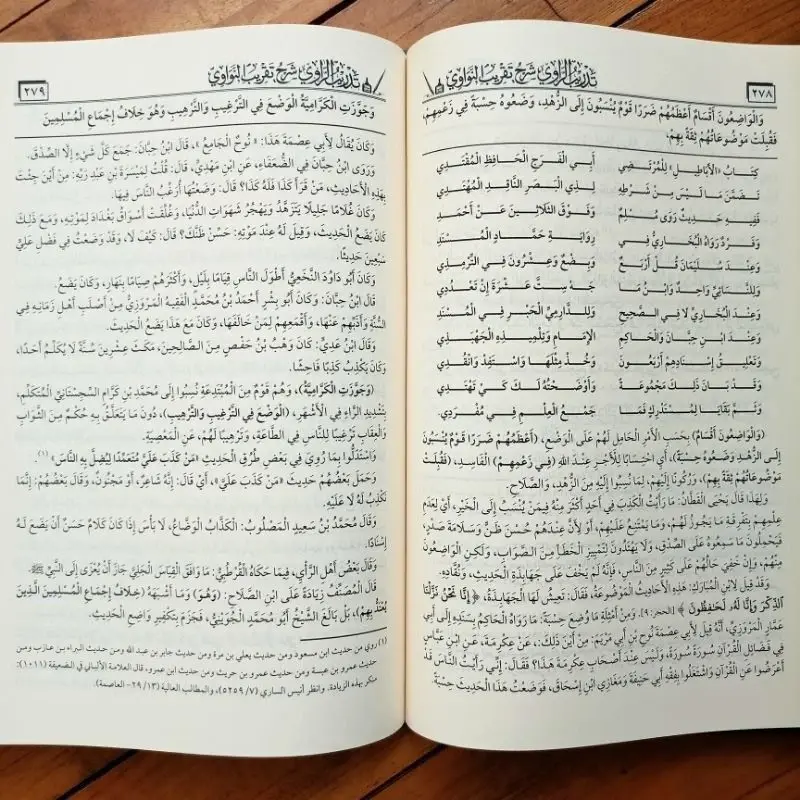 تدريب الراوي شرح تقريب النواوي
٢٧٨
وَالْوَاضِعُونَ أَقْسَامٌ أَعْظَمُهُمْ ضَرَرًا قَوْمٌ يُنْسَبُونَ إِلَى الزُّهْدِ، وَضَعُوهُ حِسْبَةً فِي زَعْمِهِمْ،
فَقُبِلَتْ مَوْضُوعَاتُهُمْ ثِقَةً بِهِمْ،
كِتَابُ «الْأَبَاطِيلِ» لِلْمُرْتَضِي أَبِي الْفَرَجِ الْحَافِظِ الْمُقْتَدِي
تَضَمَّنَ مَا لَيْسَ مِنْ شَرْطِهِ لِذِي الْبَصَرِ النَّاقِدِ الْمُهْتَدِي
فَفِيهِ حَدِيثٌ رَوَى مُسْلِمٌ وَفَوْقَ الثَّلَاثِينَ عَنْ أَحْمَدِ
وَفَرْدٌ رَوَاهُ الْبُخَارِيُّ فِي رِوَايَةِ حَمَّادٍ الْمُسْنَدِ
وَعِنْدَ سُلَيْمَانَ قُلْ أَرْبَعٌ وَبِضْعٌ وَعِشْرُونَ فِي التِّرْمِذِي
وَلِلنَّسَائِيِّ وَاحِدٌ وَابْنُ مَا جَهْ سِتَّ عَشْرَةَ إِنْ تَعْدُدِي
وَعِنْدَ الْبُخَارِيِّ لَا فِي الصَّحِيحِ وَلِلدَّارِمِيِّ الْحَبْرِ فِي الْمُسْنَدِ
وَعِنْدَ ابْنِ حِبَّانَ وَالْحَاكِمِ الْإِمَامِ وَتِلْمِيذِهِ الْجَهْبَذِي
وَتَعْلِيقُ إِسْنَادِهِمْ أَرْبَعُونَ وَخُذْ مِثْلَهَا وَاسْتَفِدْ وَانْقُدِي
وَقَدْ بَانَ ذَلِكَ مَجْمُوعُهُ وَأَوْضَحْتُهُ لَكَ كَيْ تَهْتَدِي
وَثَمَّ بَقَايَا لِمُسْتَدْرِكٍ فَمَا جَمْعُ الْعِلْمِ فِي مُفْرَدِي.
(وَالْوَاضِعُونَ أَقْسَامٌ) بِحَسَبِ الْأَمْرِ الْحَامِلِ لَهُمْ عَلَى الْوَضْعِ، (أَعْظَمُهُمْ ضَرَرًا قَوْمٌ يُنْسَبُونَ
إِلَى الزُّهْدِ وَضَعُوهُ حِسْبَةً)، أَيِ احْتِسَابًا لِلْأَجْرِ عِنْدَ اللهِ (فِي زَعْمِهِمُ) الْفَاسِدِ، (فَقُبِلَتْ
مَوْضُوعَاتُهُمْ ثِقَةً بِهِمْ)، وَرُكُونًا إِلَيْهِمْ، لِمَا نُسِبُوا إِلَيْهِ مِنَ الزُّهْدِ، وَالصَّلَاحِ.
وَلِهَذَا قَالَ يَحْيَى الْقَطَّانُ: مَا رَأَيْتُ الْكَذِبَ فِي أَحَدٍ أَكْثَرَ مِنْهُ فِيمَنْ يُنْسَبُ إِلَى الْخَيْرِ، أَيْ لِعَدَمِ
عِلْمِهِمْ بِتَفْرِقَةِ مَا يَجُوزُ لَهُمْ، وَمَا يَمْتَنِعُ عَلَيْهِمْ، أَوْ لِأَنَّ عِنْدَهُمْ حُسْنَ ظَنٍّ وَسَلَامَةَ صَدْرٍ،
فَيَحْمِلُونَ مَا سَمِعُوهُ عَلَى الصِّدْقِ، وَلَا يَهْتَدُونَ لِتَمْيِيزِ الْخَطَأِ مِنَ الصَّوَابِ، وَلَكِنِ الْوَاضِعُونَ
مِنْهُمْ، وَإِنْ خَفِيَ حَالُهُمْ عَلَى كَثِيرٍ مِنَ النَّاسِ، فَإِنَّهُ لَمْ يَخْفَ عَلَى جَهَابِذَةِ الْحَدِيثِ، وَنُقَّادِهِ.
وَقَدْ قِيلَ لِابْنِ الْمُبَارَكِ: هَذِهِ الْأَحَادِيثُ الْمَوْضُوعَةُ، فَقَالَ: تَعِيشُ لَهَا الْجَهَابِذَةُ، ﴿إِنَّا نَحْنُ نَزَّلْنَا
الذِّكْرَ وَإِنَّا لَهُ لَحَافِظُونَ﴾ [الحجر:٩]. وَمِنْ أَمْثِلَةِ مَا وُضِعَ حِسْبَةً: مَا رَوَاهُ الْحَاكِمُ بِسَنَدِهِ إِلَى أَبِي
عَمَّارٍ الْمَرْوَزِيِّ، أَنَّهُ قِيلَ لِأَبِي عِصْمَةَ نُوحِ بْنِ أَبِي مَرْيَمَ: مِنْ أَيْنَ لَكَ، عَنْ عِكْرِمَةَ، عَنِ ابْنِ عَبَّاسٍ
فِي فَضَائِلِ الْقُرْآنِ سُورَةً سُورَةً، وَلَيْسَ عِنْدَ أَصْحَابِ عِكْرِمَةَ هَذَا؟ فَقَالَ: إِنِّي رَأَيْتُ النَّاسَ قَدْ
أَعْرَضُوا عَنِ الْقُرْآنِ وَاشْتَغَلُوا بِفِقْهِ أَبِي حَنِيفَةَ وَمَغَازِي ابْنِ إِسْحَاقَ، فَوَضَعْتُ هَذَا الْحَدِيثَ حِسْبَةً.
تدريب الراوي شرح تقريب النواوي
٢٧٩
وَجَوَّزَتِ الْكَرَّامِيَّةُ الْوَضْعَ فِي التَّرْغِيبِ وَالتَّرْهِيبِ وَهُوَ خِلَافُ إِجْمَاعِ الْمُسْلِمِينَ
وَكَانَ يُقَالُ لِأَبِي عِصْمَةَ هَذَا: «نُوحٌ الْجَامِعُ»، قَالَ ابْنُ حِبَّانَ: جَمَعَ كُلَّ شَيْءٍ إِلَّا الصِّدْقَ.
وَرَوَى ابْنُ حِبَّانَ فِي الضُّعَفَاءِ، عَنِ ابْنِ مَهْدِيٍّ، قَالَ: قُلْتُ لِمَيْسَرَةَ بْنِ عَبْدِ رَبِّهِ: مِنْ أَيْنَ جِئْتَ
بِهَذِهِ الْأَحَادِيثِ، مَنْ قَرَأَ كَذَا فَلَهُ كَذَا؟ قَالَ: وَضَعْتُهَا أُرَغِّبُ النَّاسَ فِيهَا.
وَكَانَ غُلَامًا جَلِيلًا يَتَزَهَّدُ وَيَهْجُرُ شَهَوَاتِ الدُّنْيَا، وَغُلِّقَتْ أَسْوَاقُ بَغْدَادَ لِمَوْتِهِ، وَمَعَ ذَلِكَ
كَانَ يَضَعُ الْحَدِيثَ، وَقِيلَ لَهُ عِنْدَ مَوْتِهِ: حَسِّنْ ظَنَّكَ؟ قَالَ: كَيْفَ لَا، وَقَدْ وَضَعْتُ فِي فَضْلِ عَلِيٍّ
سَبْعِينَ حَدِيثًا.
وَكَانَ أَبُو دَاوُدَ النَّخَعِيُّ أَطْوَلَ النَّاسِ قِيَامًا بِلَيْلٍ، وَأَكْثَرَهُمْ صِيَامًا بِنَهَارٍ، وَكَانَ يَضَعُ.
قَالَ ابْنُ حِبَّانَ: وَكَانَ أَبُو بِشْرٍ أَحْمَدُ بْنُ مُحَمَّدٍ الْفَقِيهُ الْمَرْوَزِيُّ مِنْ أَصْلَبِ أَهْلِ زَمَانِهِ فِي
السُّنَّةِ وَأَذَبِّهِمْ عَنْهَا، وَأَقْمَعِهِمْ لِمَنْ خَالَفَهَا، وَكَانَ مَعَ هَذَا يَضَعُ الْحَدِيثَ.
وَقَالَ ابْنُ عَدِيٍّ: كَانَ وَهْبُ بْنُ حَفْصٍ مِنَ الصَّالِحِينَ، مَكَثَ عِشْرِينَ سَنَةً لَا يُكَلِّمُ أَحَدًا،
وَكَانَ يَكْذِبُ كَذِبًا فَاحِشًا.
(وَجَوَّزَتِ الْكَرَّامِيَّةُ)، وَهُمْ قَوْمٌ مِنَ الْمُبْتَدِعَةِ نُسِبُوا إِلَى مُحَمَّدِ بْنِ كَرَّامٍ السِّجِسْتَانِيِّ الْمُتَكَلِّمِ،
بِتَشْدِيدِ الرَّاءِ فِي الْأَشْهَرِ، (الْوَضْعَ فِي التَّرْغِيبِ وَالتَّرْهِيبِ)، دُونَ مَا يَتَعَلَّقُ بِهِ حُكْمٌ مِنَ الثَّوَابِ
وَالْعِقَابِ تَرْغِيبًا لِلنَّاسِ فِي الطَّاعَةِ، وَتَرْهِيبًا لَهُمْ، عَنِ الْمَعْصِيَةِ.
وَاسْتَدَلُّوا بِمَا رُوِيَ فِي بَعْضِ طُرُقِ الْحَدِيثِ «مَنْ كَذَبَ عَلَيَّ مُتَعَمِّدًا لِيُضِلَّ بِهِ النَّاسَ» (١).
وَحَمَلَ بَعْضُهُمْ حَدِيثَ «مَنْ كَذَبَ عَلَيَّ»، أَيْ قَالَ: إِنَّهُ شَاعِرٌ، أَوْ مَجْنُونٌ، وَقَالَ بَعْضُهُمْ: إِنَّمَا
نَكْذِبُ لَهُ لَا عَلَيْهِ.
وَقَالَ مُحَمَّدُ بْنُ سَعِيدٍ الْمَصْلُوبُ: الْكَذَّابُ الْوَضَّاعُ، لَا بَأْسَ إِذَا كَانَ كَلَامٌ حَسَنٌ أَنْ يَضَعَ لَهُ
إِسْنَادًا.
وَقَالَ بَعْضُ أَهْلِ الرَّأْيِ، فِيمَا حَكَاهُ الْقُرْطُبِيُّ: مَا وَافَقَ الْقِيَاسَ الْجَلِيَّ جَازَ أَنْ يُعْزَى إِلَى النَّبِيِّ ﷺ.
قَالَ الْمُصَنِّفُ زِيَادَةً عَلَى ابْنِ الصَّلَاحِ: (وَهُوَ) وَمَا أَشْبَهَهُ (خِلَافُ إِجْمَاعِ الْمُسْلِمِينَ الَّذِينَ
يُعْتَدُّ بِهِمْ)، بَلْ بَالَغَ الشَّيْخُ أَبُو مُحَمَّدٍ الْجُوَيْنِيُّ، فَجَزَمَ بِتَكْفِيرِ وَاضِعِ الْحَدِيثِ.
(١) روي من حديث ابن مسعود ومن حديث يعلى بن مرة ومن حديث جابر بن عبد الله ومن حديث البراء بن عازب ومن
حديث عمرو بن عبسة ومن حديث عمرو بن حريث ومن حديث ابن عمرو، قال العلامة الألباني في الضعيفة (١٠١١):
منكر بهذه الزيادة. وانظر أنيس الساري (٧/ ٥٢٥٩)، والمطالب العالية (١٣/ ٢٩- العاصمة)